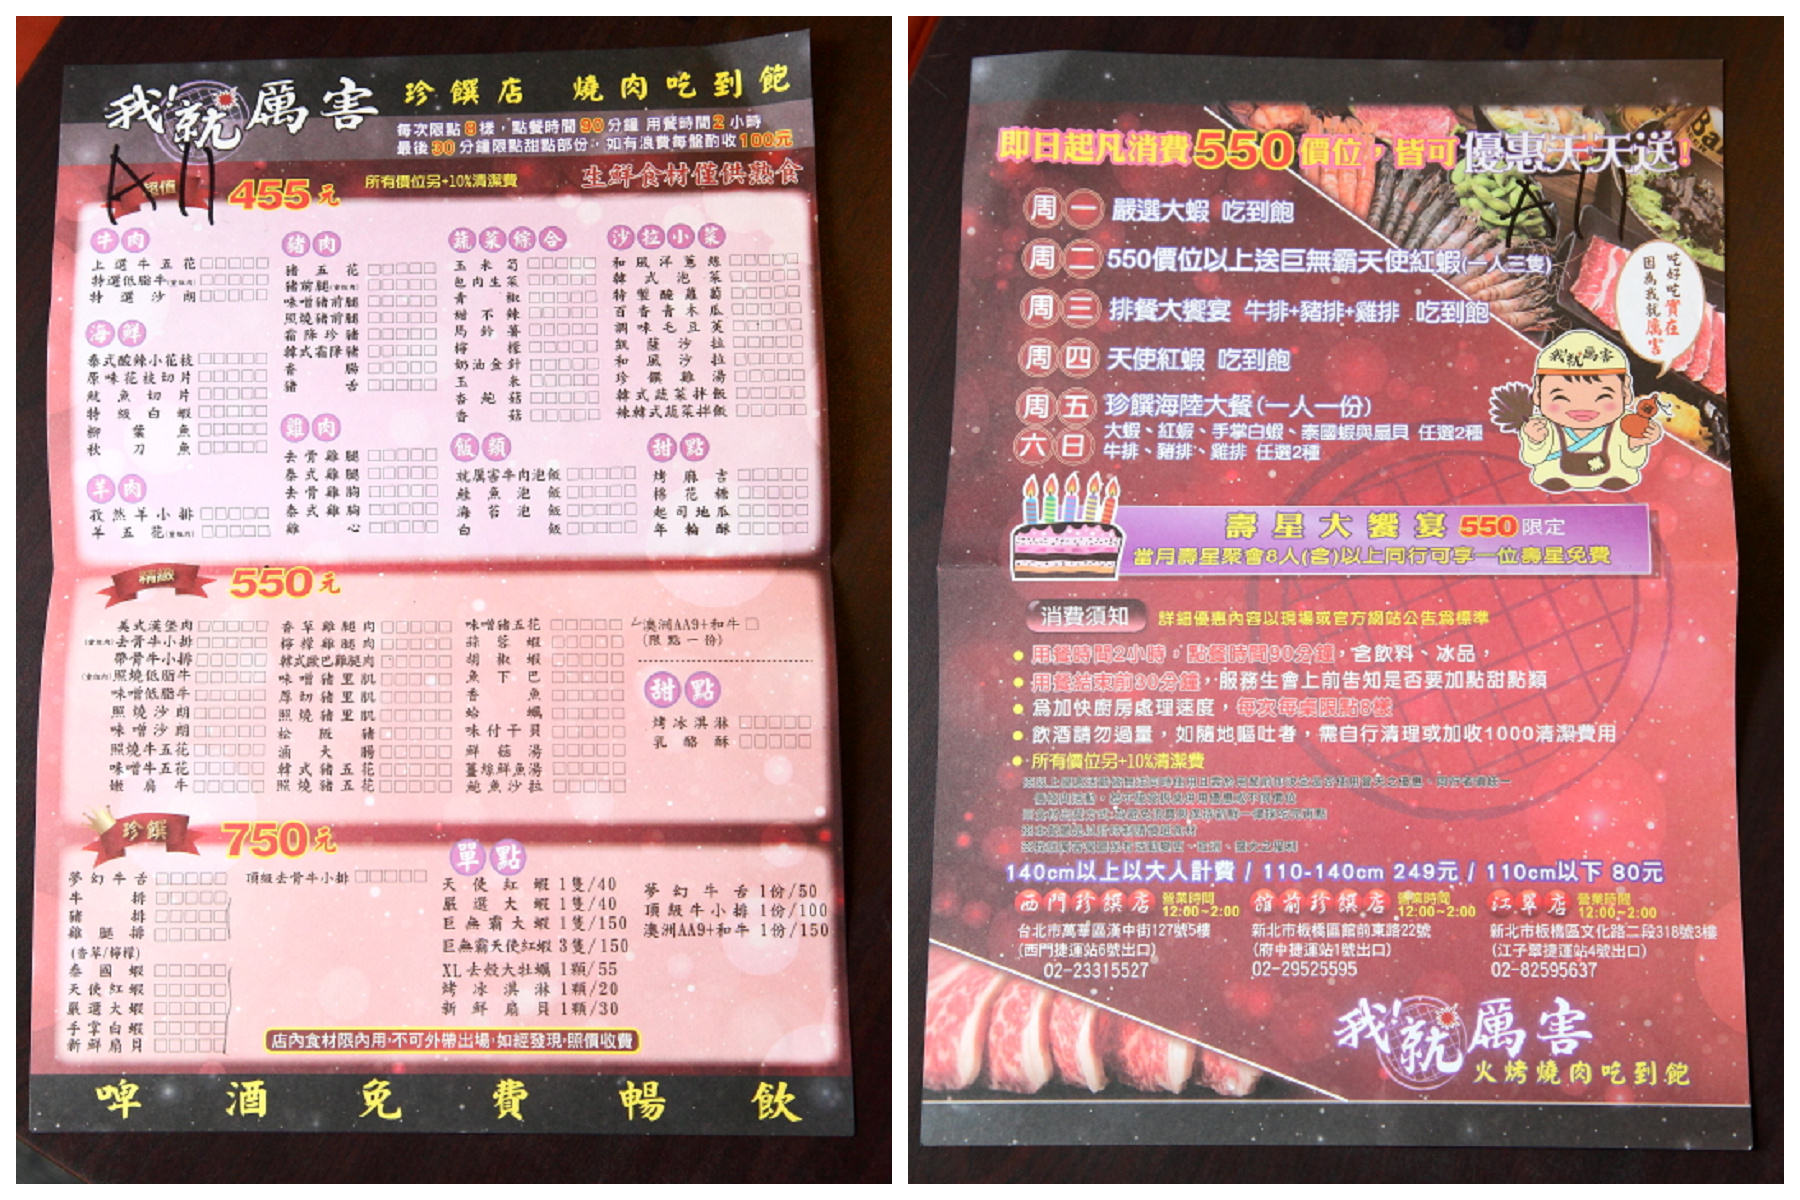 我!就厲害 珍饌店 燒肉吃到飽
每次限點8樣,點餐時間90分鐘 用餐時間2小時
最後30分鐘限點甜點部份,如有浪費每盤酌收100元
A11
超值 455元 所有價位另+10%清潔費 生鮮食材僅供熟食
牛肉
上選牛五花
特選低脂牛(重組肉)
特選沙朗
海鮮
泰式酸辣小花枝
原味花枝切片
魷魚切片
特級白蝦
柳葉魚
秋刀魚
羊肉
孜然羊小排
羊五花(重組肉)
豬肉
豬五花
豬前腿(重組肉)
味噌豬前腿
照燒豬前腿
霜降珍豬
韓式霜降豬
香腸
豬舌
雞肉
去骨雞腿
泰式雞腿
去骨雞胸
泰式雞胸
雞心
蔬菜綜合
玉米筍
包肉生菜
青椒
甜不辣
馬鈴薯
檸檬
奶油金針
玉米
杏鮑菇
香菇
飯類
就厲害牛肉泡飯
鮭魚泡飯
海苔泡飯
白飯
沙拉小菜
和風洋蔥絲
韓式泡菜
特製醃蘿蔔
百香青木瓜
調味毛豆莢
凱薩沙拉
和風沙拉
珍饌雞湯
韓式蔬菜拌飯
辣韓式蔬菜拌飯
甜點
烤麻吉
棉花糖
起司地瓜
年輪酥
精緻 550元
美式漢堡肉
(重組肉)去骨牛小排
帶骨牛小排
(重組肉)照燒低脂牛
味噌低脂牛
照燒沙朗
味噌沙朗
照燒牛五花
味噌牛五花
嫩肩牛
香草雞腿肉
檸檬雞腿肉
韓式歐巴雞腿肉
味噌豬里肌
厚切豬里肌
照燒豬里肌
松阪豬
滷大腸
韓式豬五花
照燒豬五花
味噌豬五花
蒜蓉蝦
胡椒蝦
魚下巴
香魚
蛤蠣
味付干貝
鮮菇湯
薑絲鮮魚湯
鮑魚沙拉
澳洲AA9+和牛
(限點一份)
甜點
烤冰淇淋
乳酪酥
珍饌 750元
夢幻牛舌
牛排
豬排
雞腿排
(香草/檸檬)
泰國蝦
天使紅蝦
嚴選大蝦
手掌白蝦
新鮮扇貝
頂級去骨牛小排
單點
天使紅蝦 1隻/40
嚴選大蝦 1隻/40
巨無霸大蝦 1隻/150
巨無霸天使紅蝦 3隻/150
XL去殼大牡蠣 1顆/55
烤冰淇淋 1顆/20
新鮮扇貝 1顆/30
夢幻牛舌 1份/50
頂級牛小排 1份/100
澳洲AA9+和牛 1份/150
店內食材限內用,不可外帶出場,如經發現,照價收費
啤酒免費暢飲
即日起凡消費550價位,皆可優惠天天送!
A11
周一 嚴選大蝦 吃到飽
周二 550價位以上送巨無霸天使紅蝦(一人三隻)
周三 排餐大饗宴 牛排+豬排+雞排 吃到飽
周四 天使紅蝦 吃到飽
周五六日 珍饌海陸大餐(一人一份)
大蝦、紅蝦、手掌白蝦、泰國蝦與扇貝 任選2種
牛排、豬排、雞排 任選2種
吃好吃實在
因為我就厲害
我就厲害
壽星大饗宴 550限定
當月壽星聚會8人(含)以上同行可享一位壽星免費
消費須知 詳細優惠內容以現場或官方網站公告為標準
●用餐時間2小時,點餐時間90分鐘,含飲料、冰品,
●用餐結束前30分鐘,服務生會上前告知是否要加點甜點類
●為加快廚房處理速度,每次每桌限點8樣
●飲酒請勿過量,如隨地嘔吐者,需自行清理或加收1000清潔費用
●所有價位另+10%清潔費
140cm以上以大人計費 / 110-140cm 249元 / 110cm以下 80元
西門珍饌店 營業時間 12:00~2:00
台北市萬華區漢中街127號5樓
(西門捷運站6號出口)
02-23315527
館前珍饌店 營業時間 12:00~2:00
新北市板橋區館前東路22號
(府中捷運站1號出口)
02-29525595
江翠店 營業時間 12:00~2:00
新北市板橋區文化路二段318號3樓
(江子翠捷運站4號出口)
02-82595637
我!就厲害
火烤燒肉吃到飽